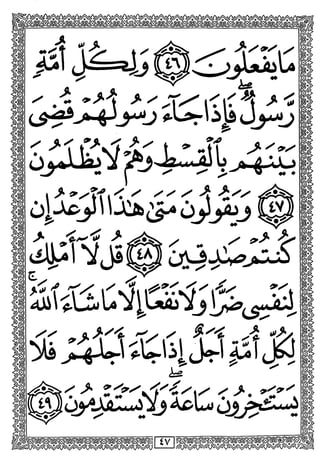 مَا يَفْعَلُونَ ٤٦ وَلِكُلِّ أُمَّةٍ
رَّسُولٌ ۖ فَإِذَا جَآءَ رَسُولُهُمْ قُضِىَ
بَيْنَهُم بِالْقِسْطِ وَهُمْ لَا يُظْلَمُونَ
٤٧ وَيَقُولُونَ مَتَىٰ هَٰذَا الْوَعْدُ إِن
كُنتُمْ صَٰدِقِينَ ٤٨ قُل لَّآ أَمْلِكُ
لِنَفْسِى ضَرًّا وَلَا نَفْعًا إِلَّا مَا شَآءَ اللَّهُ ۗ
لِكُلِّ أُمَّةٍ أَجَلٌ ۚ إِذَا جَآءَ أَجَلُهُمْ فَلَا
يَسْتَـْٔخِرُونَ سَاعَةً ۖ وَلَا يَسْتَقْدِمُونَ ٤٩
٤٧